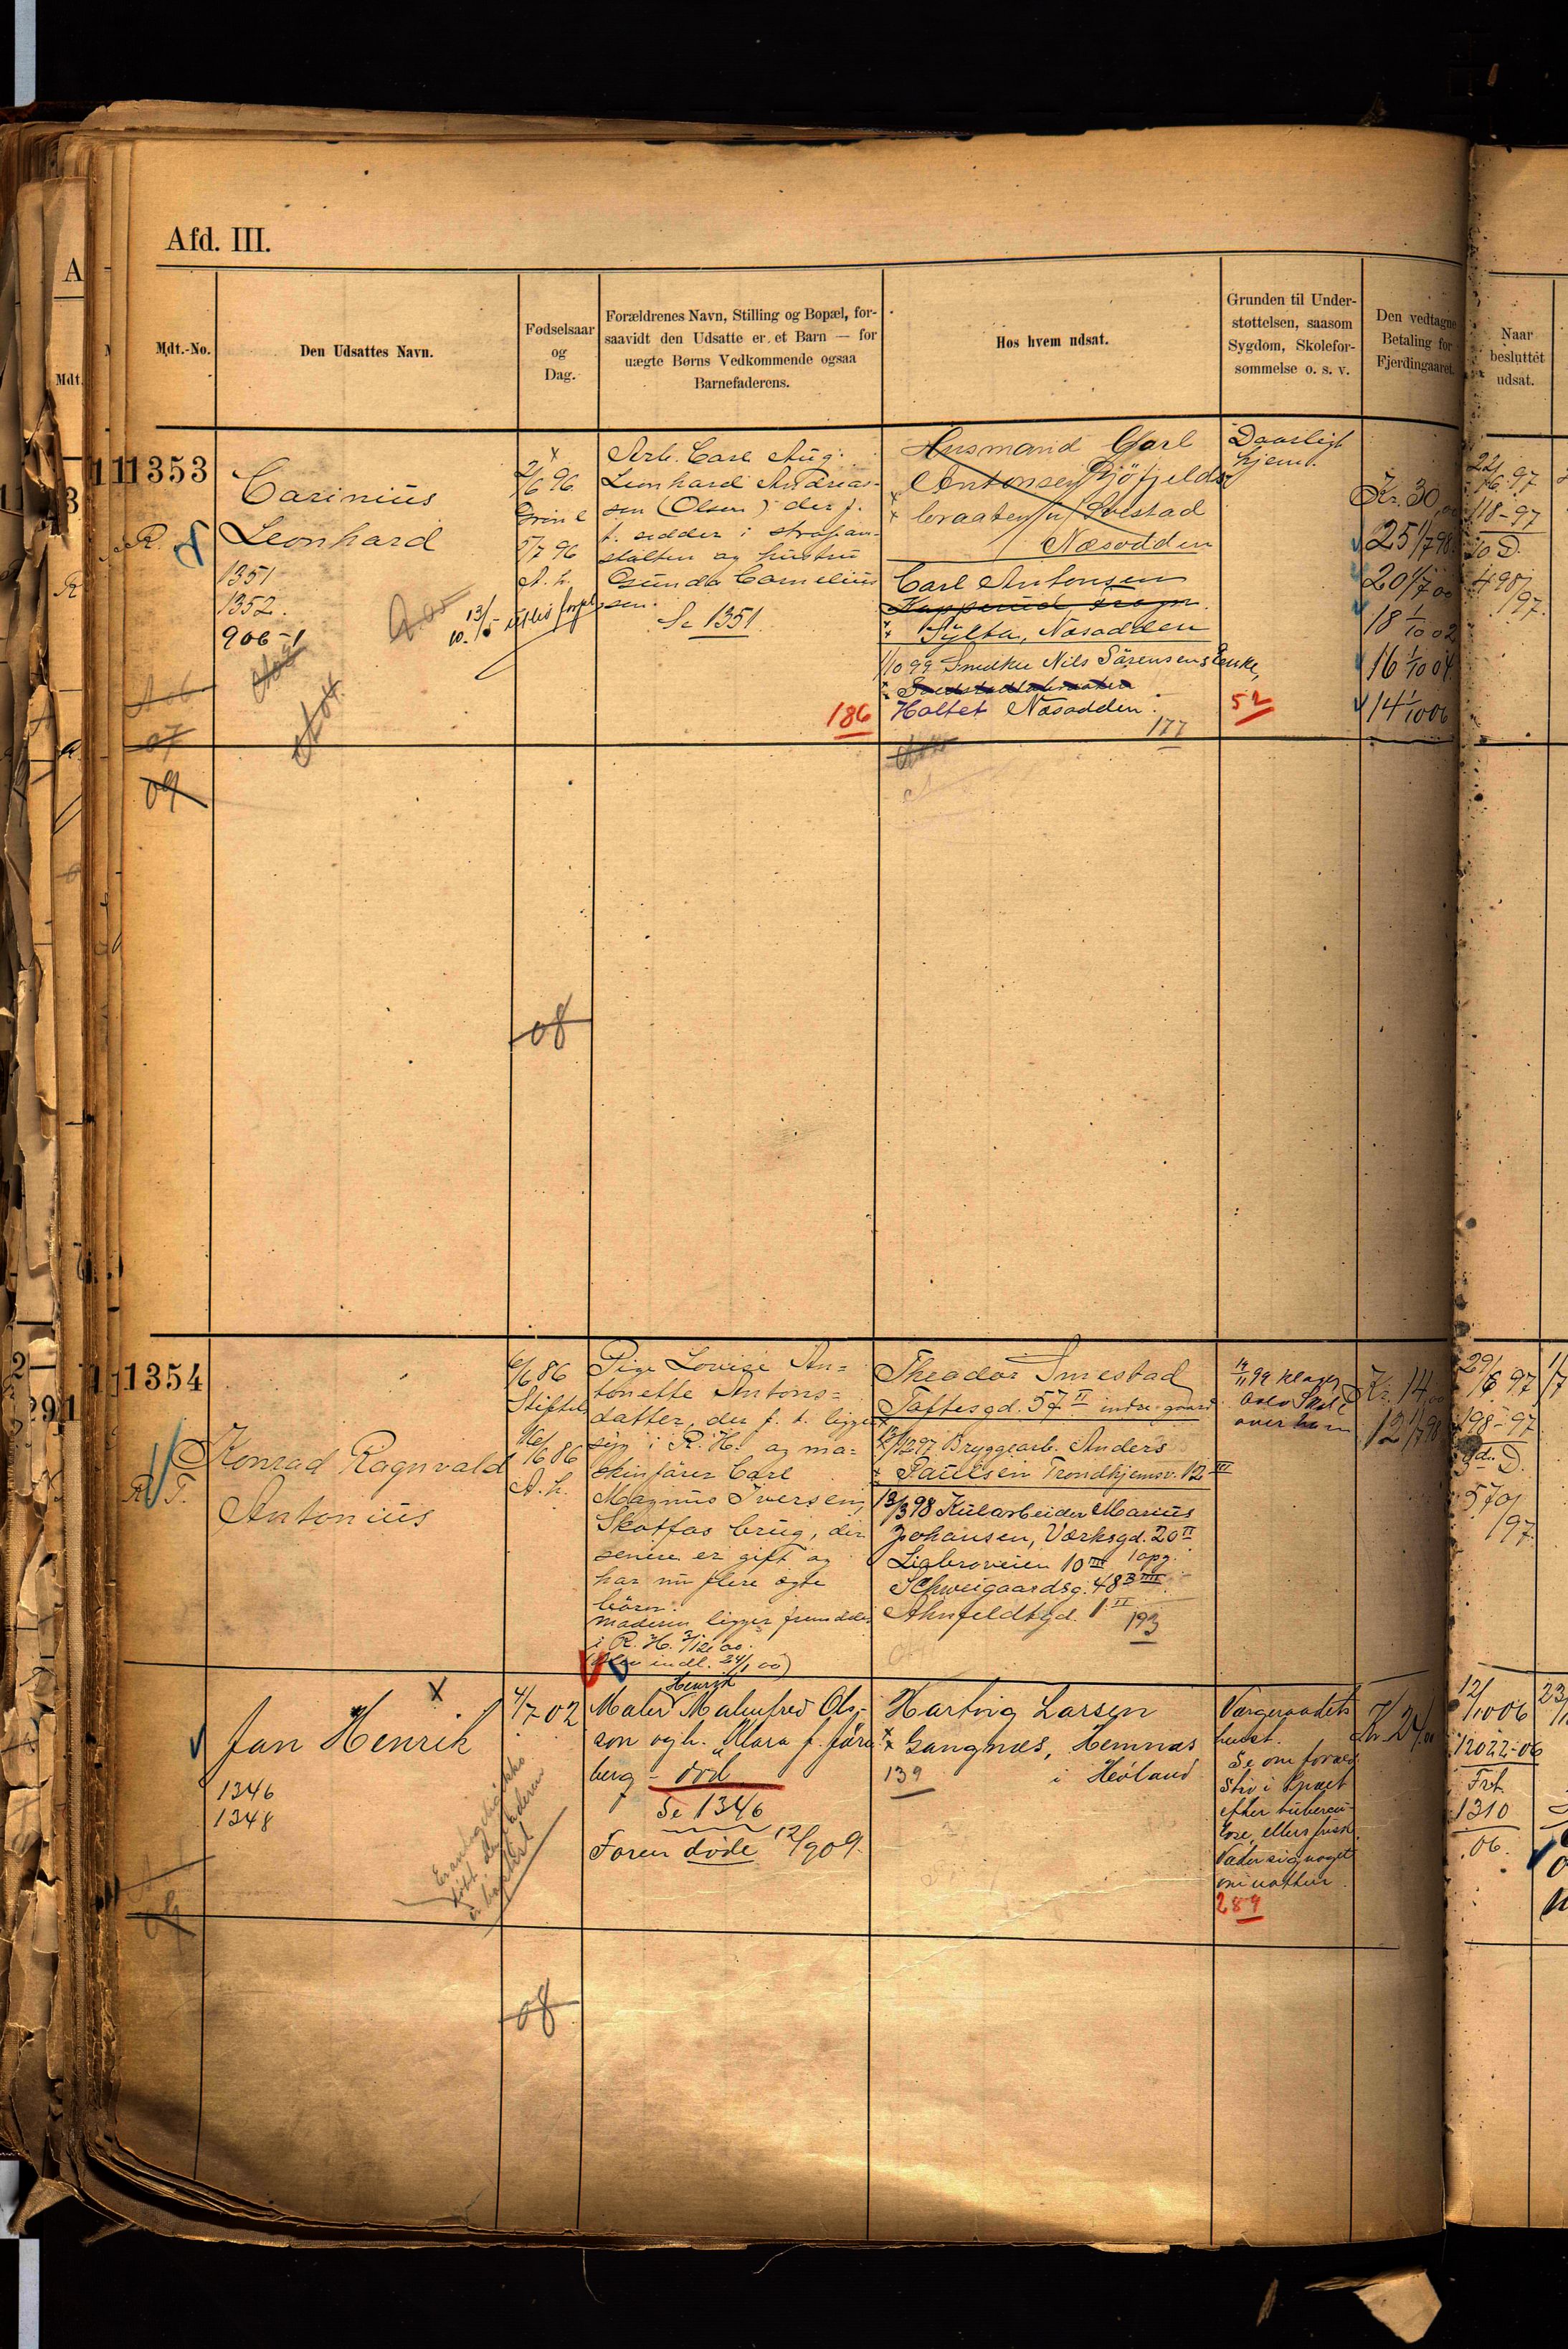 Afd. III.
Mdt.-No.
Den Udsattes Navn.
Fødselsaar
og
Dag.
Forældrenes Navn, Stilling og Bopæl, for-
saavidt den Udsatte er et Barn — for
uægte Børns Vedkommende ogsaa
Barnefaderens.
Hos hvem udsat.
Grunden til Under-
støttelsen, saasom
Sygdom, Skolefor-
sømmelse o. s. v.
Den vedtagne
Betaling for
Fjerdingaaret.
Naar
besluttet
udsat.
1353
R.
Carinius
Leonhard
1351
1352.
906-1
07
09
2/6 96
5/7 96
A. h.
08
Arb. Carl Aug.
Leonhard Andreas-
sen (Olsen) der f.
t. sidder i strafan-
stalten og hustru
Gunda Cornelius
sen.
Se 1351
186
Husmand Carl
Antonsen
braaten
Næsodden
Carl Antonsen
Sylta, Næsodden
1/10 99 Nils Sørensens Enke,
Holtet Næsodden.
177
Daarligt
hjem.
52
Kr. 30,00
25 1/7 98
20 1/7 00
18 1/10 02
16 1/10 04
14 1/10 06
22/6 97
118-97
498/
97.
1354
R. T.
Konrad Ragnvald
Antonius
6/6 86
Stiftels.
16/6 86
A. h.
Pige Lovise An=
tonette Antons=
datter, der f. t. ligger
syg i R. H. og ma=
skinfører Carl
Magnus Iversen,
Skotfos brug, der
senere er gift og
har nu flere ægte
børn.
Moderen ligger fremdeles
i R. H. 3/12 00.
(Blev indl. 24/1 00)
Theodor Smestad
Toftesgd. 57 II indre gaard
12 97 Bryggearb. Anders
Paulsen Trondhjemsv. 12 III
12/3 98 Kularbeider Marius
Johansen, Værksgd. 20 II
Ligbroveien 10 III 1 opg.
Schweigaardsg. 48 3
Ahnfeldtsgd. 1 II
193
Klager
Oslo Skole
over ham
Kr. 14,00
12 1/7 98
29/6 97
198-97
D.
570/
97.
Jan Henrik
1346
1348
4/7 02
08
Henrik
Maler Malmfred Ols-
son og h. Klara f. Fare
berg - død
Se 1346
Faren døde 12/9 09.
Hartvig Larsen
Gangnæs, Hemnæs
i Høland
139
Værgeraadets
beslt.
Se om foræld
Stiv i knæet
efter tuberku-
lose, ellers frisk.
Væder sig noget
om natten.
289
Kr. 24,00
12/10 06
12022-06
Frt.
1310
06.